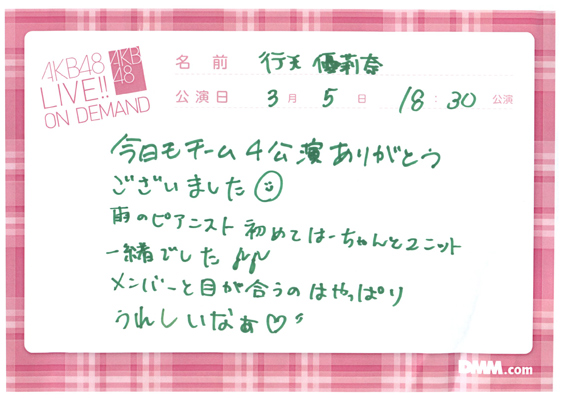 AKB48
LIVE!!
ON DEMAND
AKB
48
名前 行天 優莉奈
公演日 3月 5日 18:30 公演
今日もチーム4公演ありがとう
ございました
雨のピアニスト 初めてはーちゃんとユニット
一緒でした
メンバーと目が合うのはやっぱり
うれしいなぁ♡
DMM.com